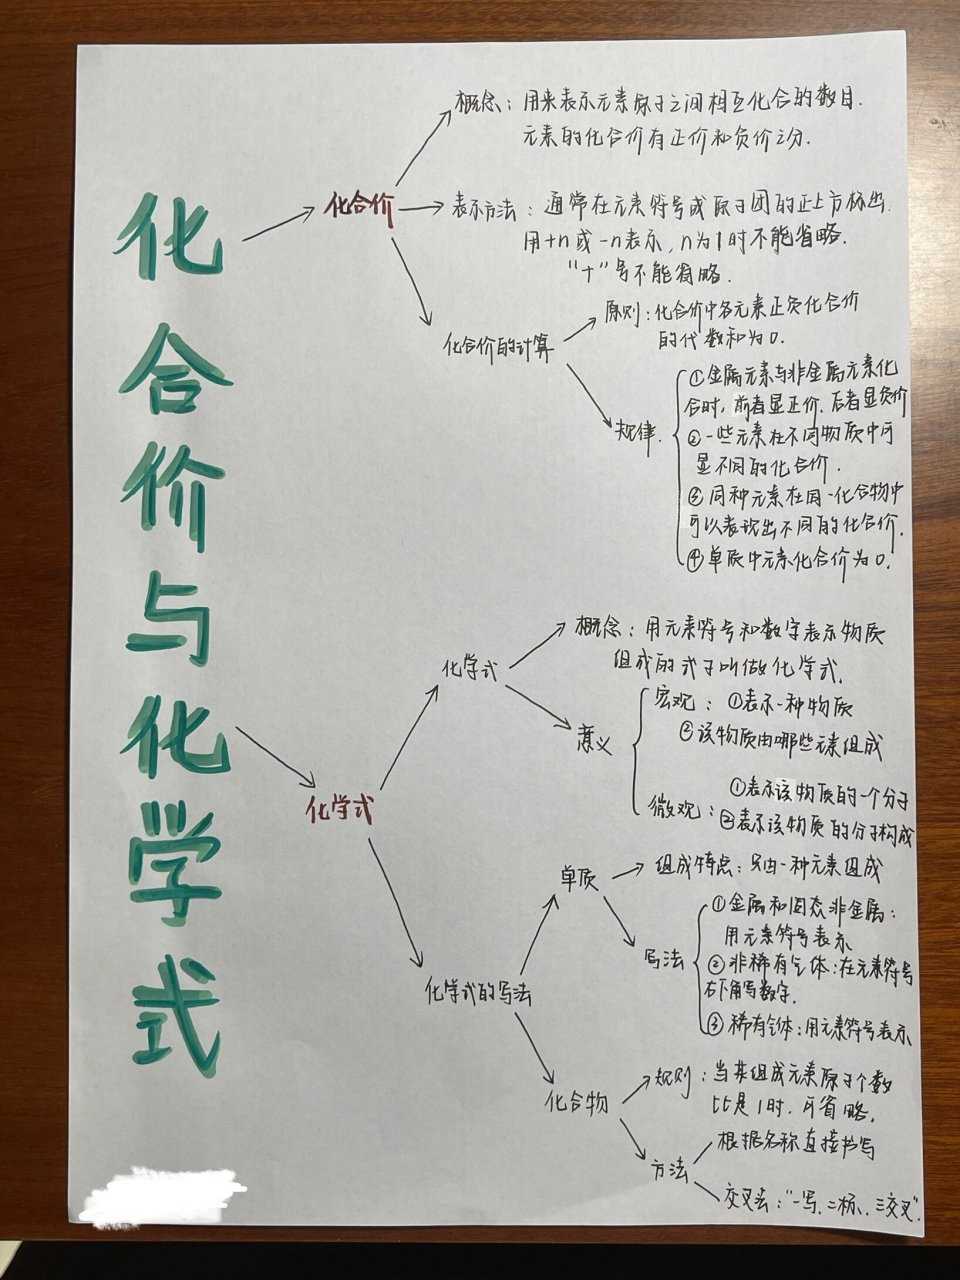 化合价与化学式
化合价
概念：用来表示元素原子之间相互化合的数目.
元素的化合价有正价和负价之分.
表示方法：通常在元素符号或原子团的正上方标出.
用+n或-n表示,n为1时不能省略.
"+"号不能省略.
化合价的计算
原则：化合价中各元素正负化合价
的代数和为0.
规律.
①金属元素与非金属元素化
合时,前者显正价.后者显负价
②一些元素在不同物质中可
显不同的化合价.
③同种元素在同一化合物中
可以表现出不同的化合价.
④单质中元素化合价为0.
化学式
化学式
概念：用元素符号和数字表示物质
组成的式子叫做化学式.
意义
宏观：①表示一种物质
②该物质由哪些元素组成
①表示该物质的一个分子
微观：②表示该物质的分子构成
化学式的写法
单质
组成特点：只由一种元素组成
写法
①金属和固态非金属：
用元素符号表示
②非稀有气体：在元素符号
右下角写数字.
③稀有气体：用元素符号表示
化合物
规则：当某组成元素原子个数
比是1时.可省略.
方法
根据名称直接书写
交叉法："一写.二标.三交叉".